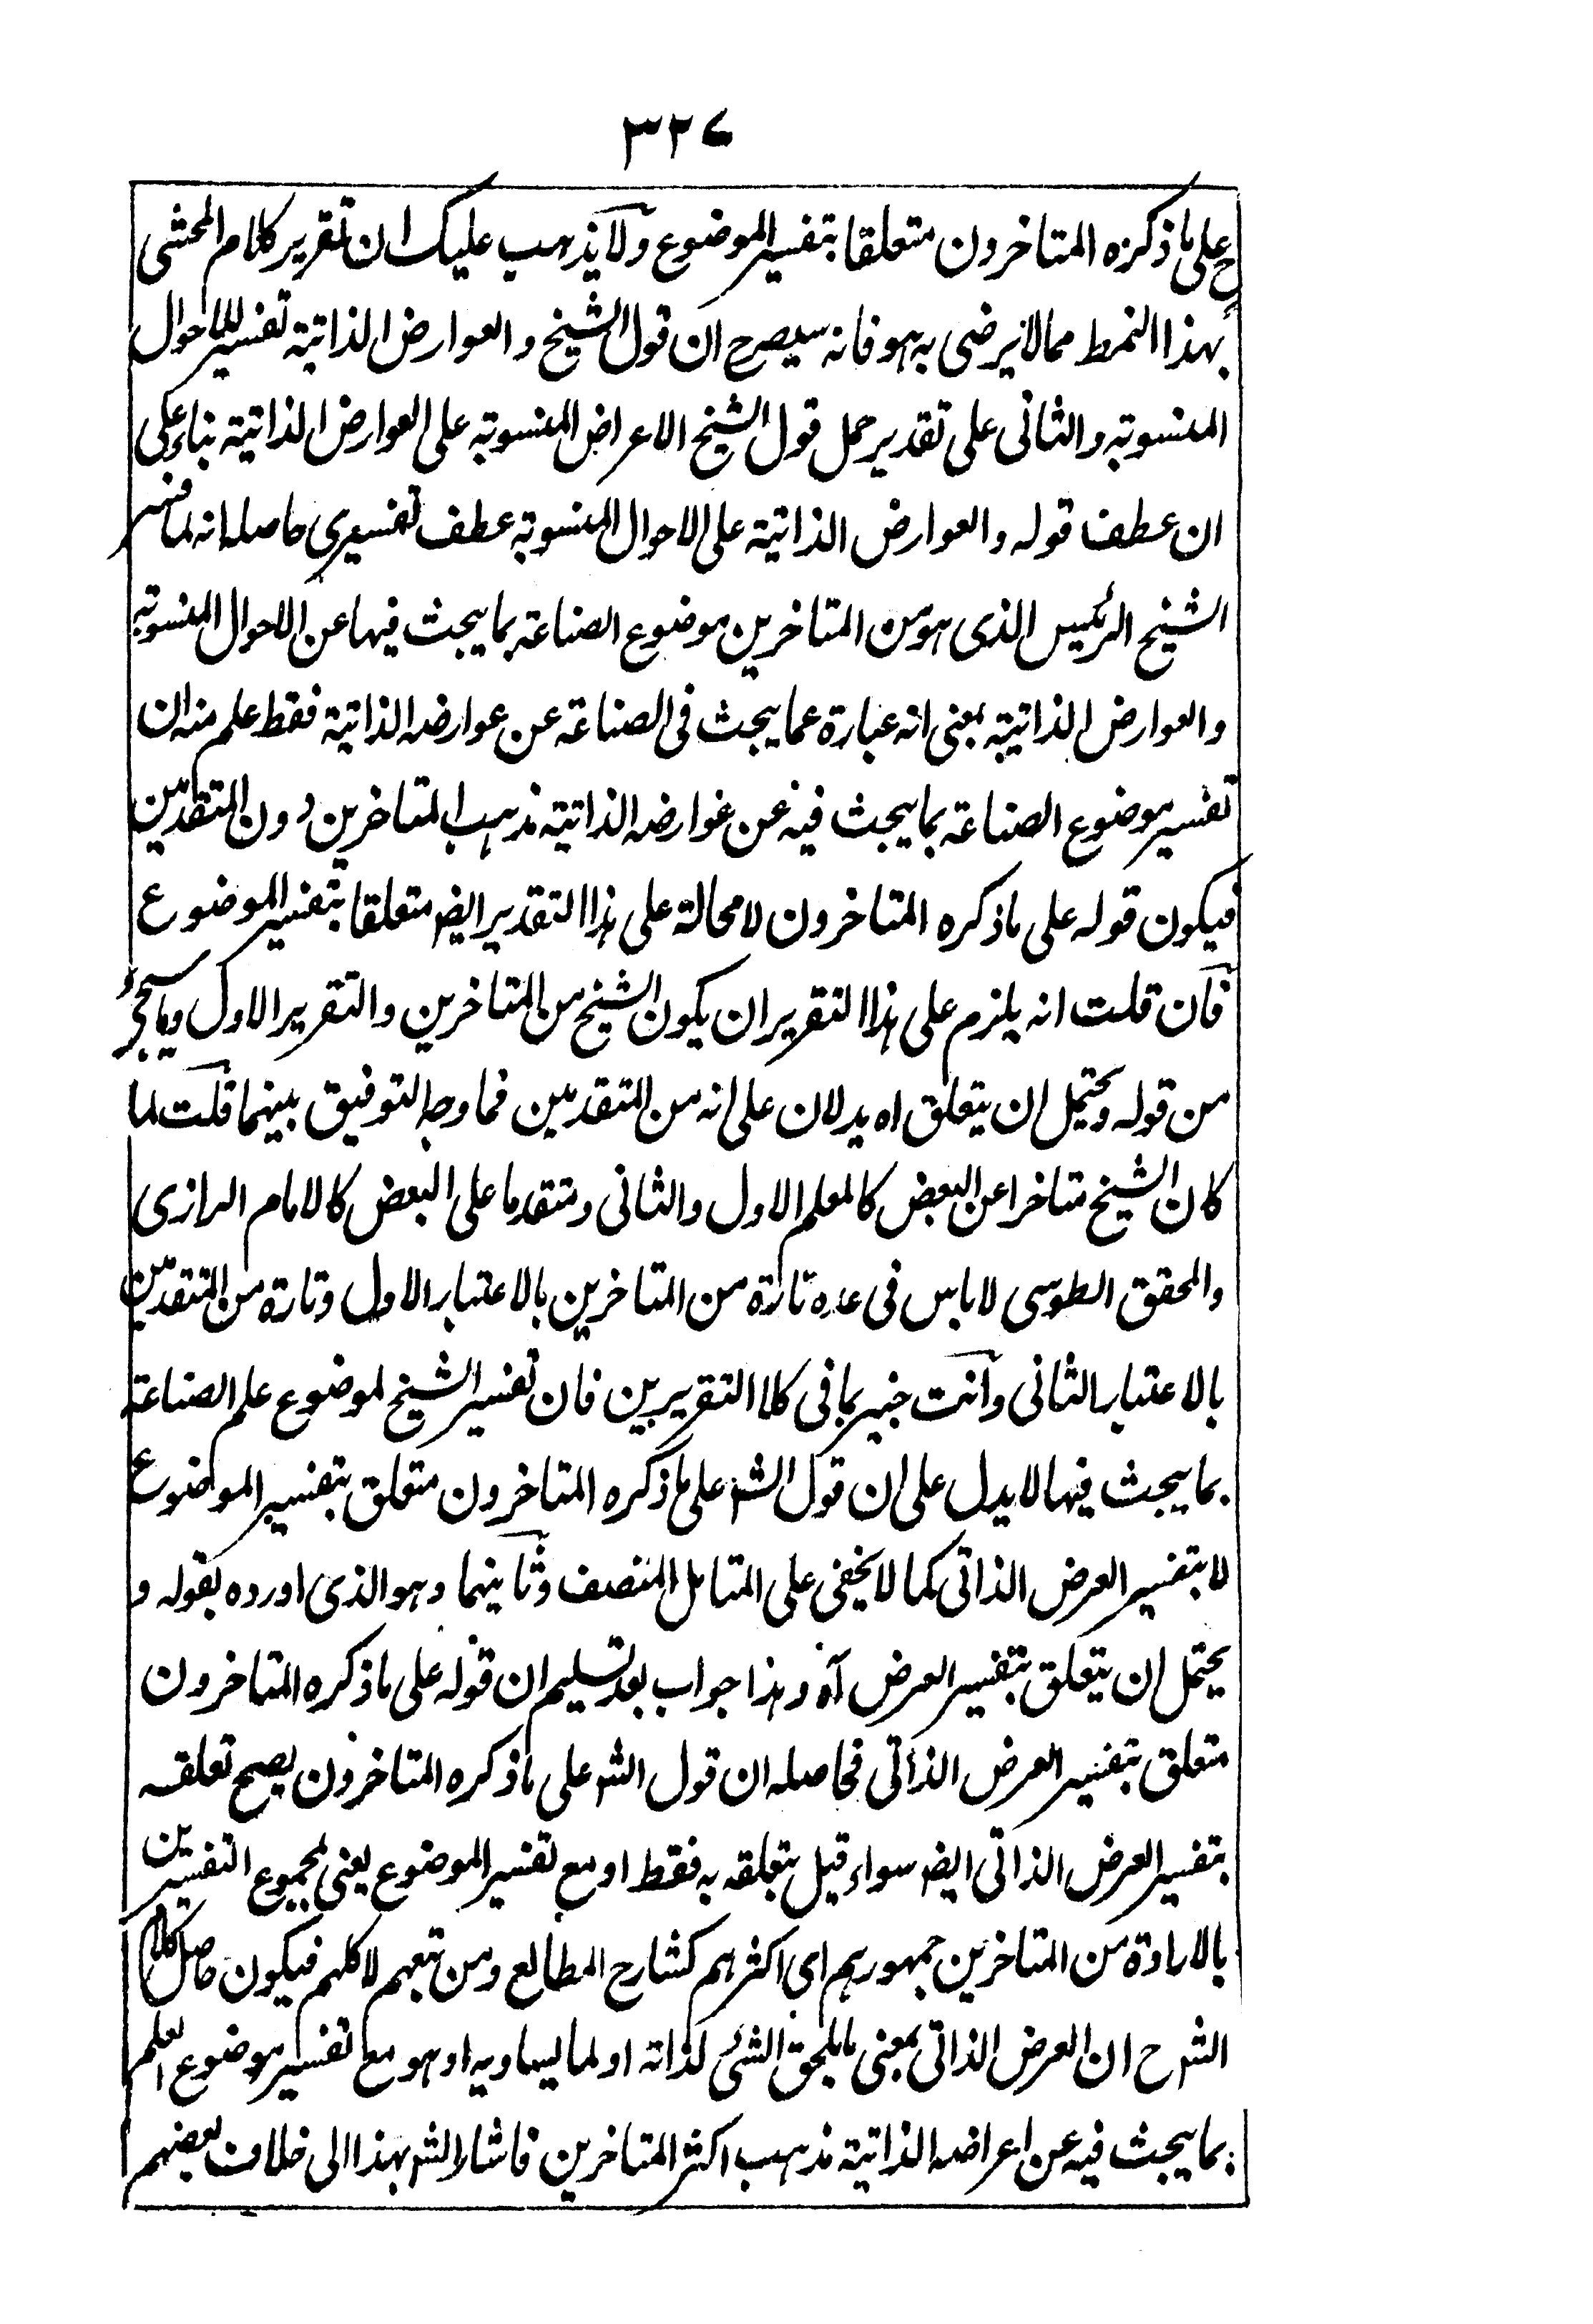 ٣٢٧
ح على ما ذكره المتاخرون متعلقا بتفسير الموضوع ولا يذهب عليك ان تقرير كلام المحشى
بهذا النمط مما لا يرضى به هو فانه سيصرح ان قول الشيخ والعوارض الذاتية تفسير للاحوال
المنسوبة والثانى على تقدير حمل قول الشيخ الاعراض المنسوبة على العوارض الذاتية بناء على
ان عطف قوله والعوارض الذاتية على الاحوال المنسوبة عطف تفسيرى حاصله انه لما فسر
الشيخ الرئيس الذى هو من المتاخرين موضوع الصناعة بما يبحث فيها عن الاحوال المنسوبة
والعوارض الذاتية بمعنى انه عبارة عما يبحث فى الصناعة عن عوارضه الذاتية فقط علم منه ان
تفسير موضوع الصناعة بما يبحث فيه عن عوارضه الذاتية مذهب المتاخرين دون المتقدمين
فيكون قوله على ما ذكره المتاخرون لا محالة على هذا التقدير ايضا متعلقا بتفسير الموضوع
فان قلت انه يلزم على هذا التقرير ان يكون الشيخ من المتاخرين والتقرير الاول وما سيجئ
من قوله ويحتمل ان يتعلق اه يدلان على انه من المتقدمين فما وجه التوفيق بينهما قلت لما
كان الشيخ متاخرا عن البعض كالمعلم الاول والثانى ومتقدما على البعض كالامام الرازى
والمحقق الطوسى لا باس فى عده تارة من المتاخرين بالاعتبار الاول وتارة من المتقدمين
بالاعتبار الثانى وانت خبير بما فى كلا التقريرين فان تفسير الشيخ لموضوع علم الصناعة
بما يبحث فيها لا يدل على ان قول الشه على ما ذكره المتاخرون متعلق بتفسير الموضوع
لا بتفسير العرض الذاتى كما لا يخفى على المتامل المنصف وثانيهما وهو الذى اورده بقوله و
يحتمل ان يتعلق بتفسير العرض آه وهذا جواب بعد تسليم ان قوله على ما ذكره المتاخرون
متعلق بتفسير العرض الذاتى فحاصله ان قول الشه على ما ذكره المتاخرون يصح تعلقه
بتفسير العرض الذاتى ايضا سواء قيل بتعلقه به فقط او مع تفسير الموضوع يعنى بمجموع التفسيرين
بالارادة من المتاخرين جمهورهم اى اكثرهم كشارح المطالع ومن تبعهم لا كلهم فيكون حاصل كلام
الشرح ان العرض الذاتى بمعنى ما يلحق الشئ لذاته او لما يساويه او هو مع تفسير موضوع العلم
بما يبحث فيه عن اعراضه الذاتية مذهب اكثر المتاخرين فاشار الشه بهذا الى خلاف بعضهم